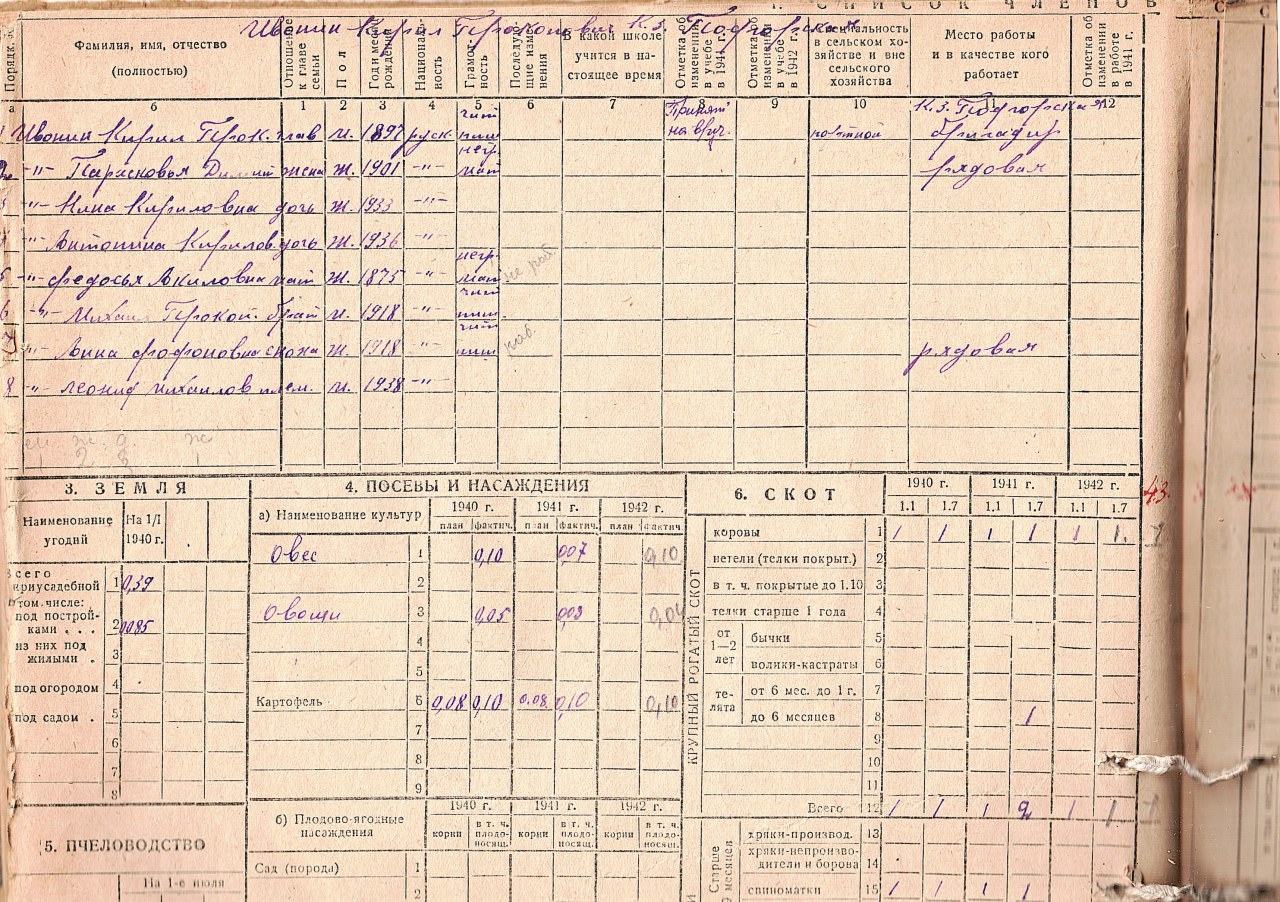 1. СПИСОК ЧЛЕНОВ
Ивонин Кирил Прокопович К.з. Подгорская
Порядк. №
Фамилия, имя, отчество
(полностью)
Отношение к главе семьи
Пол
Год и месяц рождения
Националь-ность
Грамот-ность
Последую-щие изме-нения
В какой школе
учится в на-
стоящее время
Отметка об изменении в учебе в 1941 г.
Отметка об изменении в учебе в 1942 г.
Специальность
в сельском хо-
зяйстве и вне
сельского
хозяйства
Место работы
и в качестве кого
работает
Отметка об изменении в работе в 1941 г.
а б 1 2 3 4 5 6 7 8 9 10 11 12
1 Ивонин Кирил Прок. глав м. 1897 руск чит пиш Принят на вруч. К.з. Подгорская бригадир
2 -"- Парасковья жена ж. 1901 -"- негр мат рядовая
3 -"- Нина Кириловна дочь ж. 1933 -"-
4 -"- Антонина Кирилов. дочь ж. 1936 -"-
5 -"- Федосья Акиловна мат ж. 1875 -"- негр мат не раб.
6 -"- Михаил Прокоп. брат м. 1918 -"- чит пиш.
7 -"- Анна Фофоновна сноха ж. 1918 -"- чит пиш раб. рядовая
8 -"- Леонид Михайлов плем. м. 1938 -"-
3. ЗЕМЛЯ
Наименование
угодий
На 1/I
1940 г.
Всего
приусадебной 1 0,39
В том числе:
под построй-
ками . . . 2 0085
из них под
жилыми . 3
под огородом 4
под садом . 5
6
7
8
5. ПЧЕЛОВОДСТВО
На 1-е июля
4. ПОСЕВЫ И НАСАЖДЕНИЯ
а) Наименование культур
1940 г. 1941 г. 1942 г.
план фактич. план фактич. план фактич.
Овес 1 0,10 0,07 0,10
2
Овощи 3 0,05 0,03 0,04
4
5
Картофель 6 0,08 0,10 0.08 0,10 0,10
7
8
9
б) Плодово-ягодные
насаждения
1940 г. 1941 г. 1942 г.
корни в т. ч. плодо-носящ. корни в т. ч. плодо-носящ. корни в т. ч. плодо-носящ.
Сад (порода) 1
2
6. СКОТ
1940 г. 1941 г. 1942 г.
1.1 1.7 1.1 1.7 1.1 1.7
КРУПНЫЙ РОГАТЫЙ СКОТ
коровы 1 1 1 1 1 1 1.
нетели (телки покрыт.) 2
в т. ч. покрытые до 1.10 3
телки старше 1 года 4
от
1—2
лет
бычки 5
волики-кастраты 6
те-
лята
от 6 мес. до 1 г. 7
до 6 месяцев 8 1
9
10
11
Всего 12 1 1 1 2 1 1
Старше 9 месяцев
хряки-производ. 13
хряки-непроизво-
дители и борова 14
свиноматки 15 1 1 1 1
43